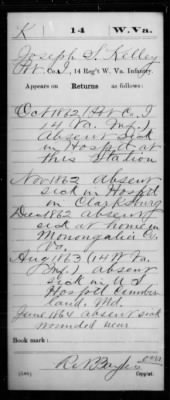 K | 14 | W. Va.
Joseph S. Kelley
Co. I, 14 Reg't W. Va. Infantry.
Appears on Returns as follows:
Oct 1862 (Co. I
14 W Va. Inf.)
Absent sick
in Hospt at
this Station
Nov 1862 Absent
sick in Hospt
in Clarksburg
Dec 1862 absent
sick at home in
Monongalia Co.
Va.
Aug 1863 (14 W Va
Inf.) absent
sick in U S
Hospt Cumber
land, Md.
June 1864 absent sick
wounded near
Book mark:
(546)
Copyist.